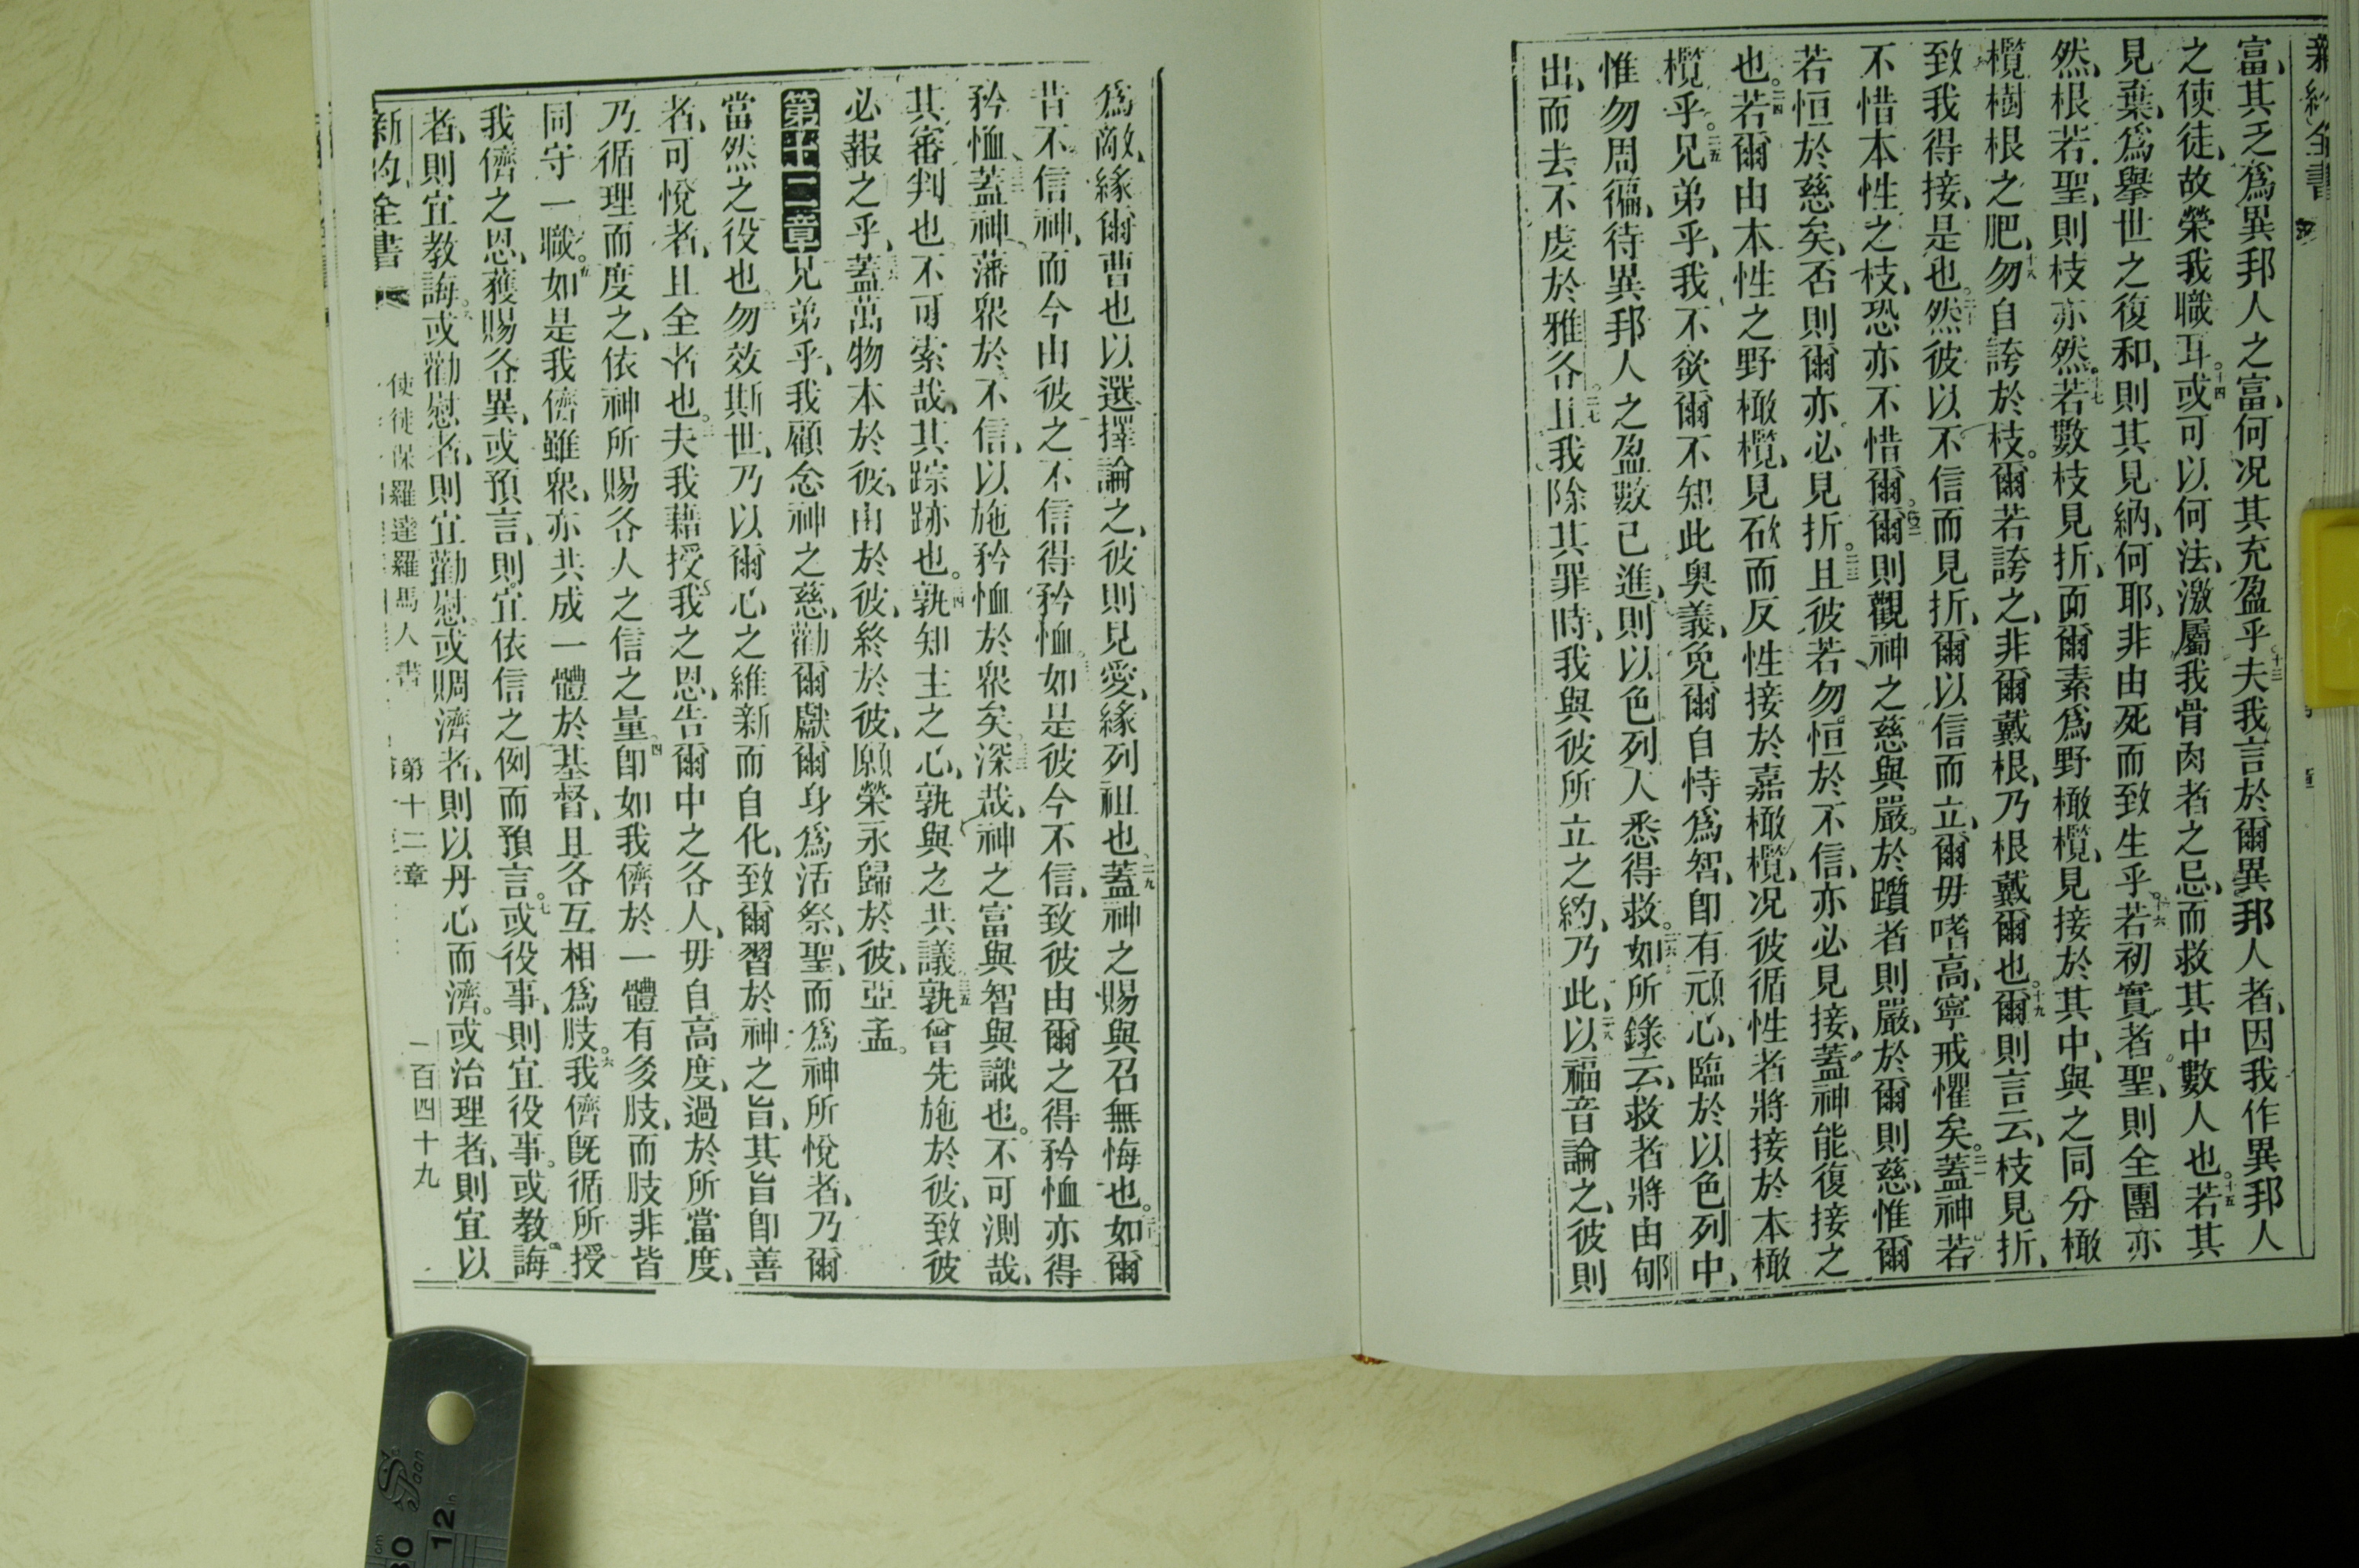 新約全書
富、其乏爲異邦人之富、何况其充盈乎。十三夫我言於爾異邦人者、因我作異邦人
之使徒、故榮我職耳。十四或可以何法、激屬我骨肉者之忌、而救其中數人也。十五若其
見棄、爲舉世之復和、則其見納、何耶、非由死而致生乎。十六若初實者聖、則全團亦
然、根若聖、則枝亦然。十七若數枝見折、而爾素爲野橄欖、見接於其中、與之同分橄
欖樹根之肥、十八勿自誇於枝。爾若誇之、非爾戴根、乃根戴爾也。十九爾則言云、枝見折、
致我得接、是也。二十然彼以不信而見折、爾以信而立、爾毋嗜高、寧戒懼矣。二一蓋神若
不惜本性之枝、恐亦不惜爾。二二爾則觀神之慈與嚴。於躓者則嚴、於爾則慈、惟爾
若恒於慈矣、否則爾亦必見折。二三且彼若勿恒於不信、亦必見接、蓋神能復接之
也。二四若爾由本性之野橄欖、見砍而反性接於嘉橄欖、况彼循性者將接於本橄
欖乎。二五兄弟乎、我不欲爾不知此奧義、免爾自恃爲智、即有頑心、臨於以色列中、
惟勿周徧、待異邦人之盈數已進、則以色列人悉得救。二六如所錄云、救者將由郇
出、而去不虔於雅各。二七且我除其罪時、我與彼所立之約、乃此、二八以福音論之、彼則
爲敵、緣爾曹也以選擇論之、彼則見愛、緣列祖也、二九蓋神之賜與召無悔也。三十如爾
昔不信神、而今由彼之不信得矜恤。三一如是彼今不信、致彼由爾之得矜恤亦得
矜恤、三二蓋神藩眾於不信、以施矜恤於眾矣。三三深哉、神之富與智與識也。不可測哉、
其審判也、不可索哉、其踪跡也。三四孰知主之心、孰與之共議、三五孰曾先施於彼、致彼
必報之乎、三六蓋萬物本於彼、由於彼、終於彼、願榮永歸於彼、亞孟。
第十二章兄弟乎、我顧念神之慈、勸爾獻爾身爲活祭、聖、而爲神所悅者、乃爾
當然之役也。二勿效斯世、乃以爾心之維新而自化、致爾習於神之旨、其旨即善
者、可悅者、且全者也。三夫我藉授我之恩、告爾中之各人、毋自高度、過於所當度、
乃循理而度之、依神所賜各人之信之量。四即如我儕於一體有多肢、而肢非皆
同守一職。五如是我儕雖眾、亦共成一體於基督、且各互相爲肢。六我儕既循所授
我儕之恩、獲賜各異、或預言、則宜依信之例而預言。七或役事、則宜役事。或教誨
者、則宜教誨。八或勸慰者、則宜勸慰。或賙濟者、則以丹心而濟。或治理者、則宜以
新約全書 使徒保羅達羅馬人書 第十二章 一百四十九
12